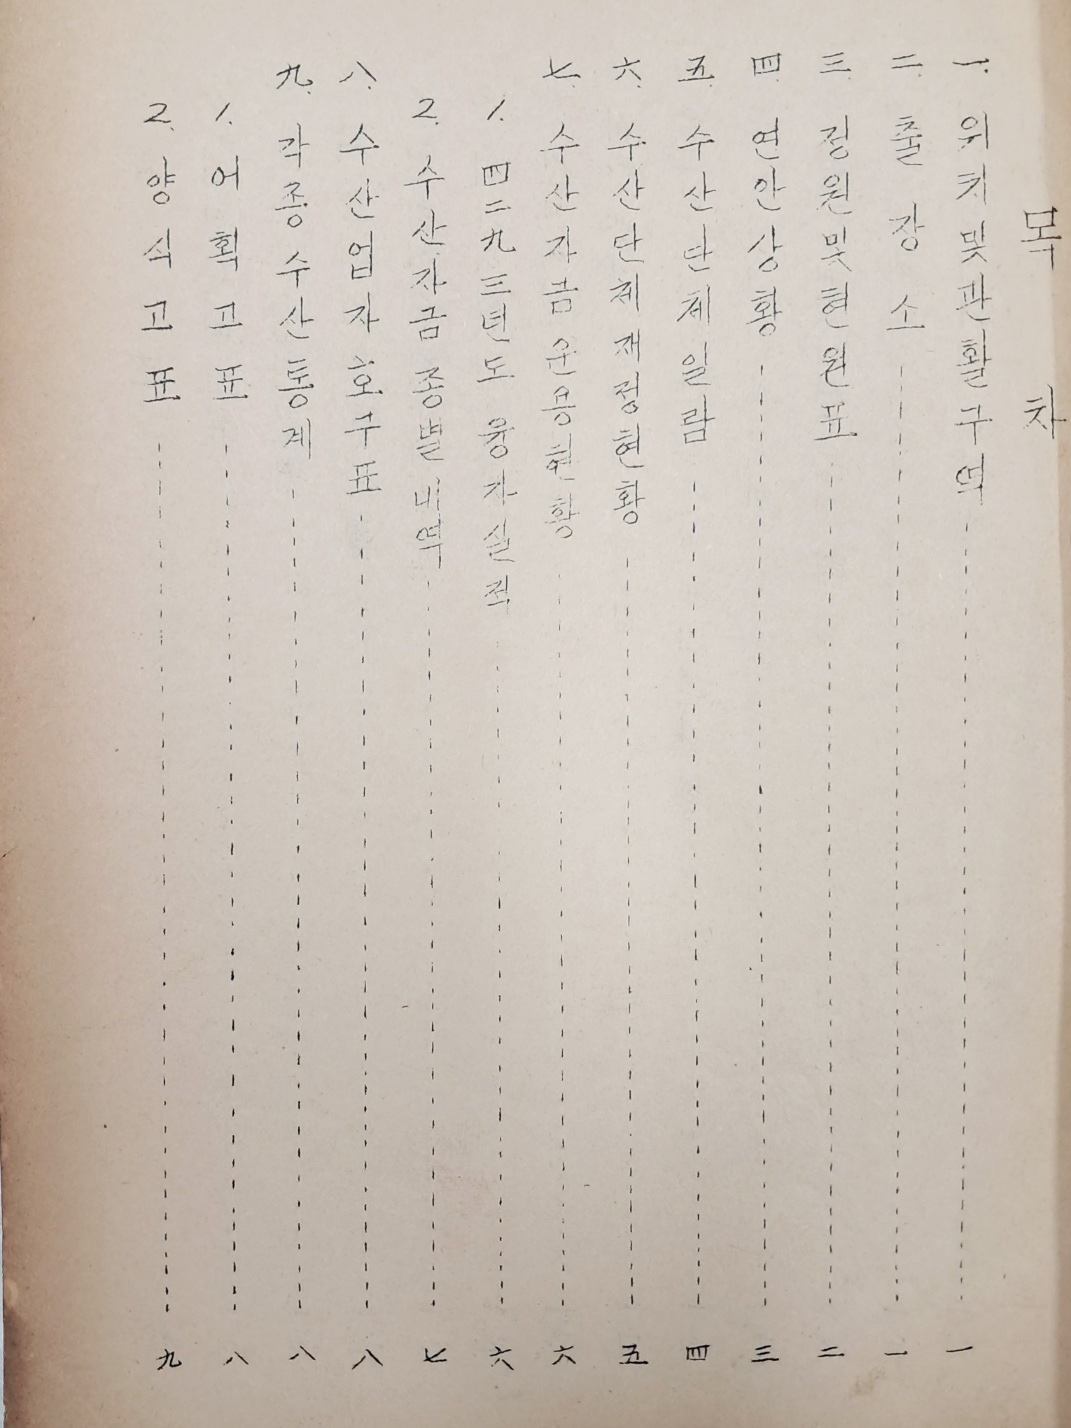 목 차
一. 위치및관활구역 一
二. 출장소 一
三. 정원및현원표 二
四. 연안상황 三
五. 수산단체일람 四
六. 수산단체재정현황 五
七. 수산자금운용현황 六
1. 四二九三년도 융자실적 六
2. 수산자금종별내역 七
八. 수산업자호구표 八
九. 각종수산통계 八
1. 어획고표 八
2. 양식고표 九